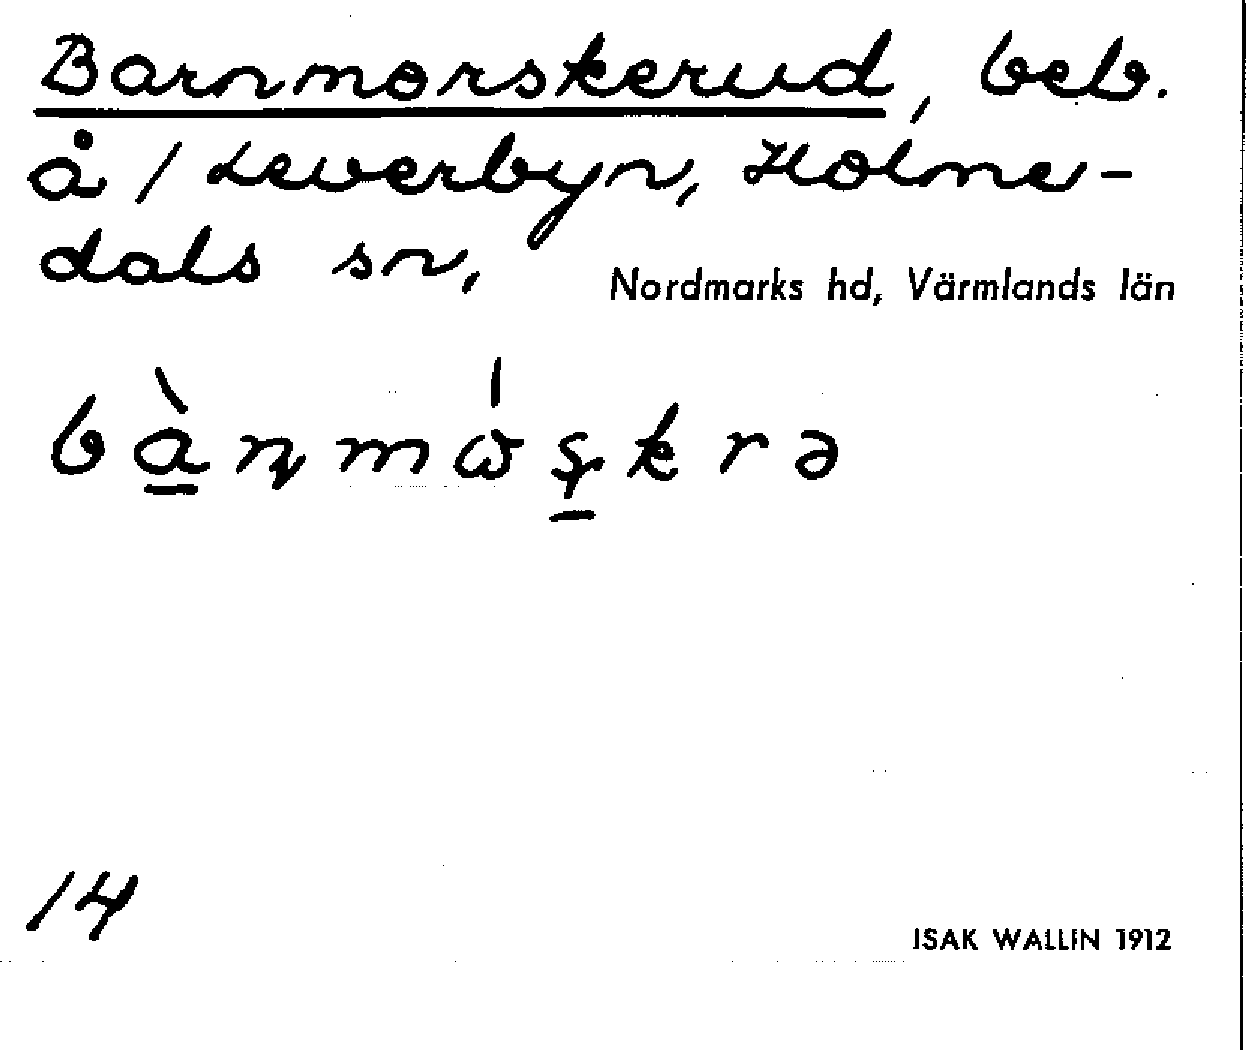 Barnmorskerud, beb.
å 1 Leverbyn, Holme-
dals sn,
Nordmarks hd, Värmlands län
bànmɷ́ʂkrə
14
ISAK WALLIN 1912